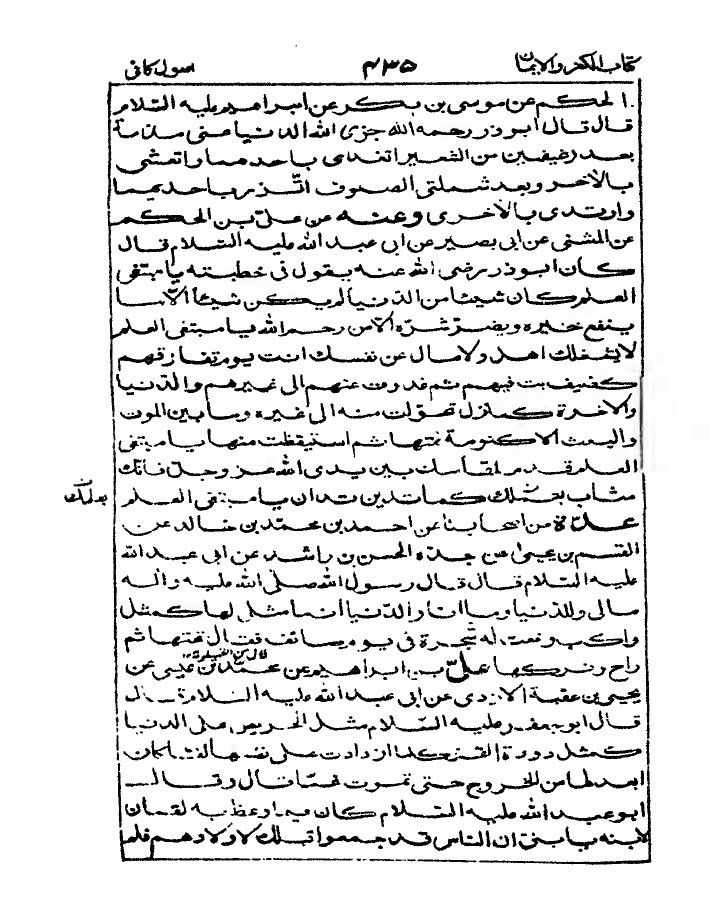 كتاب الكفر والايمان ٤٣٥ اصول كافى
الحكم عن موسى بن بكر عن ابراهيم عليه السلام
قال قال ابوذر رحمه الله جزى الله الدنيا عنى مذمة
بعد رغيفين من الشعير اتغدى باحدهما واتعشى
بالآخر وبعد شملتى الصوف اتّزر باحديهما
وارتدى بالأخرى وعنه عن علىّ بن الحكم
عن المثنى عن ابى بصير عن ابى عبد الله عليه السلام قال
كان ابوذر رضى الله عنه يقول فى خطبته يا مبتغى
العلم كان شيئا من الدنيا لم يكن شيئا الّا ما
ينفع خيره ويضرّ شرّه الّا من رحم الله يا مبتغى العلم
لا يشغلك اهل ولا مال عن نفسك انت يوم تفارقهم
كضيف بت فيهم ثم غدوت عنهم الى غيرهم والدنيا
والآخرة كمنزل تحوّلت منه الى غيره وما بين الموت
والبعث الا كنومة نمتها ثم استيقظت منها يا مبتغى
العلم قدم لمقامك بين يدى الله عز وجل فانك
مثاب بعملك كما تدين تدان يا مبتغى العلم
بعلمك
عدّة من اصحابنا عن احمد بن محمد بن خالد عن
القسم بن يحيى عن جده الحسن بن راشد عن ابى عبد الله
عليه السلام قال قال رسول الله صلى الله عليه واله
مالى وللدنيا وما انا والدنيا انما مثلى لها كمثل
راكب رفعت له شجرة فى يوم صائف فقال تحتها ثم
قال من القيلولة
راح وتركها علىّ بن ابراهيم عن محمد بن عيسى عن
يحيى بن عقبة الازدى عن ابى عبد الله عليه السلام قال
قال ابو جعفر عليه السلام مثل الحريص على الدنيا
كمثل دودة القز كلما ازدادت على نفسها لفا كان
ابعد لها من الخروج حتى تموت غمّا قال وقال
ابو عبد الله عليه السلام كان فيما وعظ به لقمان
لابنه يا بنىّ ان الناس قد جمعوا قبلك لاولادهم فلم